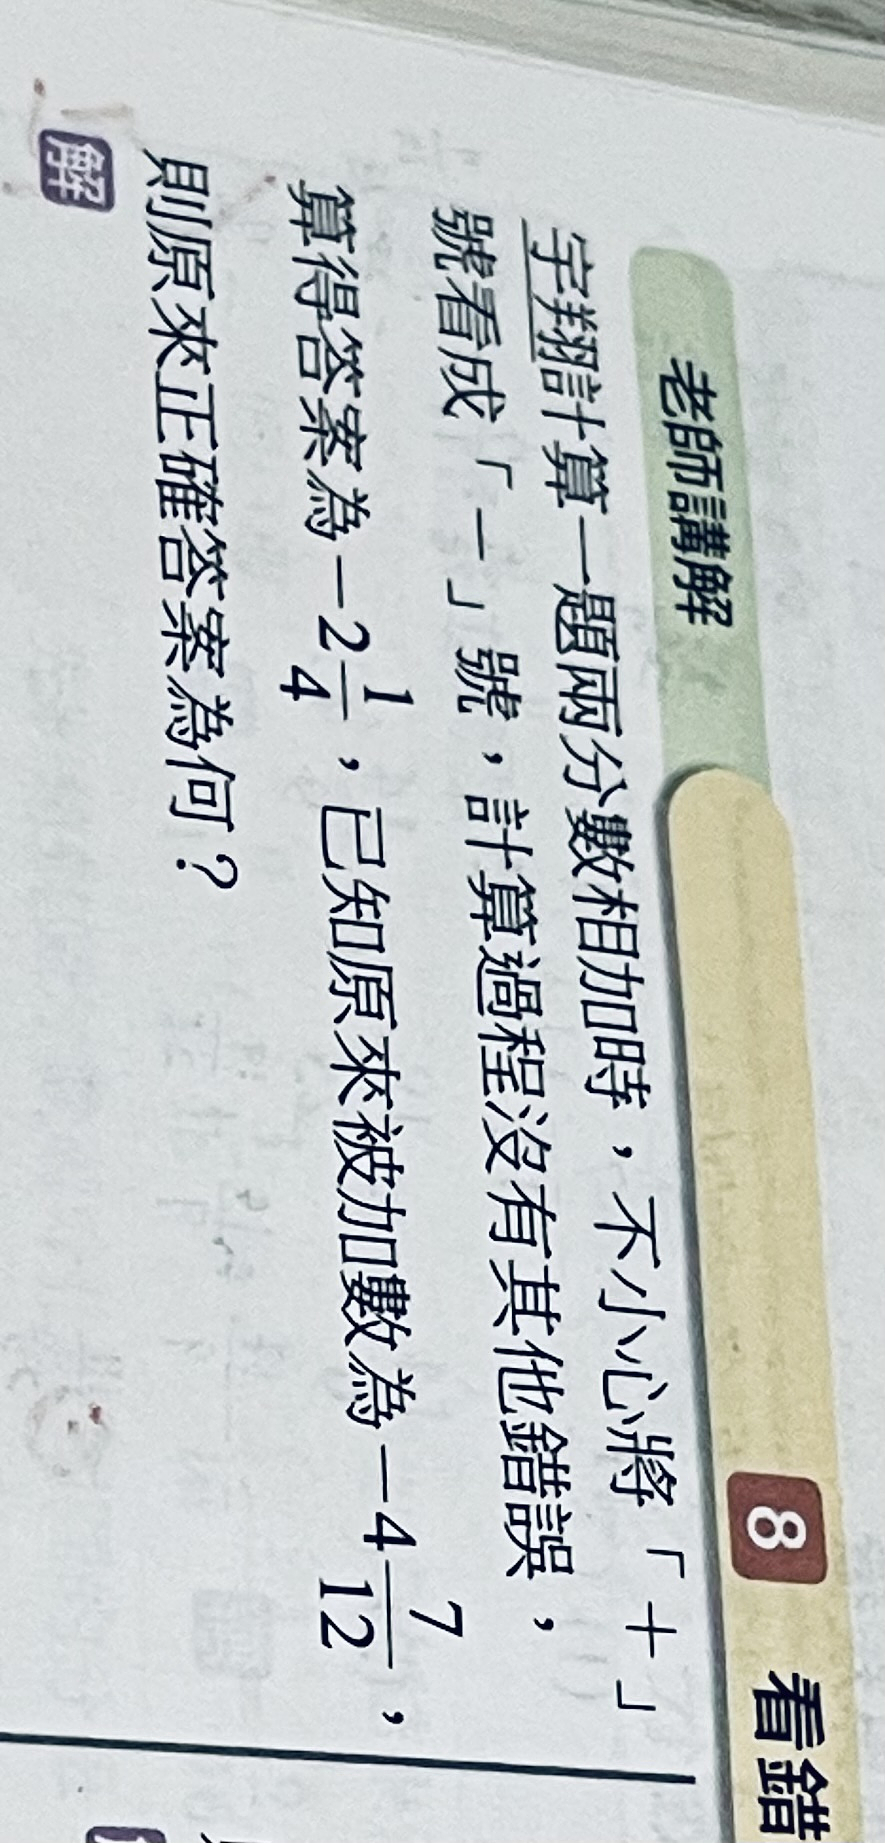 8 看錯
老師講解
宇翔計算一題兩分數相加時，不小心將「＋」
號看成「－」號，計算過程沒有其他錯誤，
算得答案為 −2 1/4，已知原來被加數為 −4 7/12，
則原來正確答案為何？
解